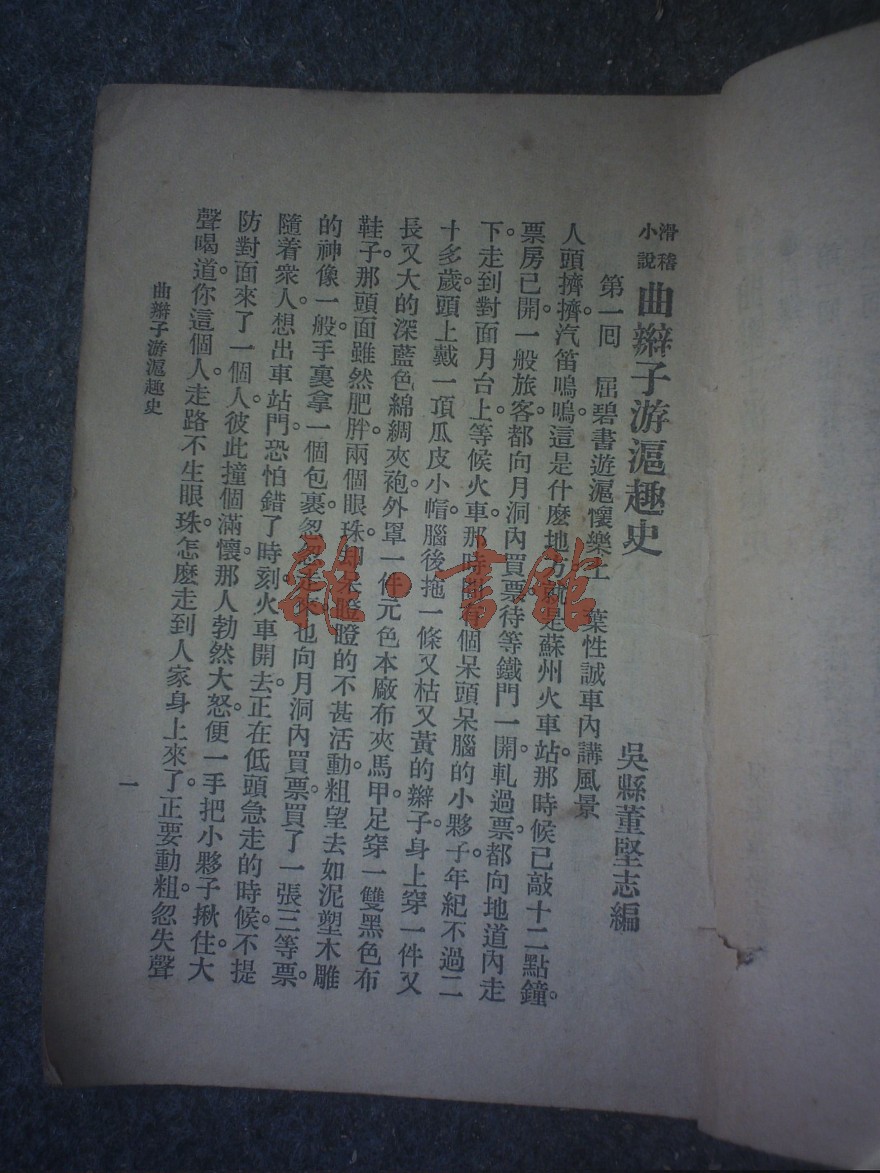 滑稽
小說
曲辮子游滬趣史
吳縣董堅志編
第一囘 屈碧書遊滬懷樂土 葉性誠車內講風景
人頭擠擠汽笛嗚嗚這是什麼地方就是蘇州火車站那時候已敲十二點鐘。
票房已開一般旅客都向月洞內買票待等鐵門一開軋過票都向地道內走
下。走到對面月台上等候火車那時有個呆頭呆腦的小夥子年紀不過二
十多歲頭上戴一頂瓜皮小帽腦後拖一條又枯又黃的辮子身上穿一件又
長又大的深藍色綿綢夾袍外罩一件元色本廠布夾馬甲足穿一雙黑色布
鞋子那頭面雖然肥胖兩個眼珠却呆瞪瞪的不甚活動粗望去如泥塑木雕
的神像一般。手裏拿一個包裹忽忽走來也向月洞內買票買了一張三等票。
隨着衆人想出車站門恐怕錯了時刻火車開去正在低頭急走的時候。不提
防對面來了一個人彼此撞個滿懷那人勃然大怒便一手把小夥子揪住。大
聲喝道你這個人走路不生眼珠怎麽走到人家身上來了正要動粗忽失聲
曲辮子游滬趣史
一
龍·書館